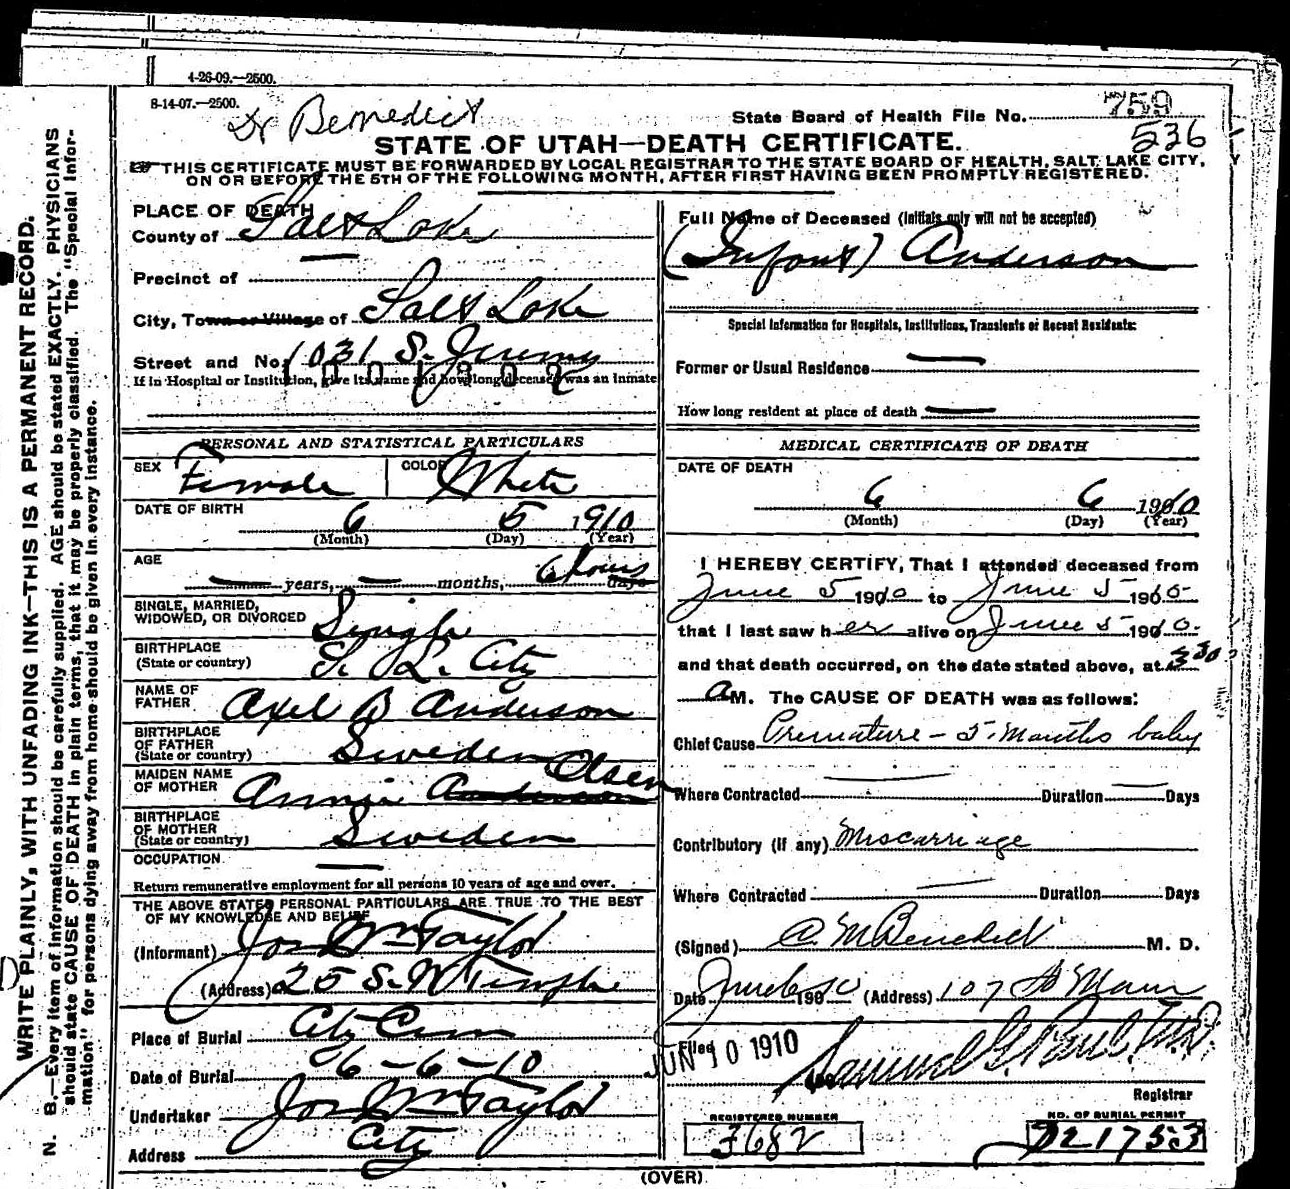 4-26-09.—2500.
8-14-07.—2500.
Dr Benedict
State Board of Health File No. 759
536
STATE OF UTAH—DEATH CERTIFICATE.
THIS CERTIFICATE MUST BE FORWARDED BY LOCAL REGISTRAR TO THE STATE BOARD OF HEALTH, SALT LAKE CITY,
ON OR BEFORE THE 5TH OF THE FOLLOWING MONTH, AFTER FIRST HAVING BEEN PROMPTLY REGISTERED.
WRITE PLAINLY, WITH UNFADING INK—THIS IS A PERMANENT RECORD.
N. B.—Every item of information should be carefully supplied. AGE should be stated EXACTLY. PHYSICIANS
should state CAUSE OF DEATH in plain terms, that it may be properly classified. The "Special Infor-
mation" for persons dying away from home should be given in every instance.
PLACE OF DEATH
County of Salt Lake
Precinct of
City, Town or Village of Salt Lake
Street and No. 1031 S. Jeremy
If in Hospital or Institution, give its name and how long deceased was an inmate
PERSONAL AND STATISTICAL PARTICULARS
SEX Female COLOR White
DATE OF BIRTH 6 5 1910
(Month) (Day) (Year)
AGE
— years, — months, 6 hours days
SINGLE, MARRIED,
WIDOWED, OR DIVORCED Single
BIRTHPLACE
(State or country) S. L. City
NAME OF
FATHER Axel B Anderson
BIRTHPLACE
OF FATHER
(State or country) Sweden
MAIDEN NAME
OF MOTHER Annie Anderson Olsen
BIRTHPLACE
OF MOTHER
(State or country) Sweden
OCCUPATION —
Return remunerative employment for all persons 10 years of age and over.
THE ABOVE STATED PERSONAL PARTICULARS ARE TRUE TO THE BEST
OF MY KNOWLEDGE AND BELIEF
(Informant) Jos Wm Taylor
(Address) 25 S. W Temple
Place of Burial City Cem
Date of Burial 6-6-10
Undertaker Jos Wm Taylor
Address City
Full Name of Deceased (Initials only will not be accepted)
(Infant) Anderson
Special Information for Hospitals, Institutions, Transients or Recent Residents:
Former or Usual Residence —
How long resident at place of death —
MEDICAL CERTIFICATE OF DEATH
DATE OF DEATH
6 6 1910
(Month) (Day) (Year)
I HEREBY CERTIFY, That I attended deceased from
June 5 1910 to June 5 1910
that I last saw her alive on June 5 1910.
and that death occurred, on the date stated above, at 3 30
a M. The CAUSE OF DEATH was as follows:
Chief Cause Premature - 5 Months baby
Where Contracted Duration — Days
Contributory (if any) Miscarriage
Where Contracted Duration Days
(Signed) M Benedict M. D.
Date June 6 190 (Address) 107 So Main
Filed JUN 10 1910 Samuel G. Paul, M.D.
Registrar
REGISTERED NUMBER NO. OF BURIAL PERMIT
3682 D21753
(OVER)